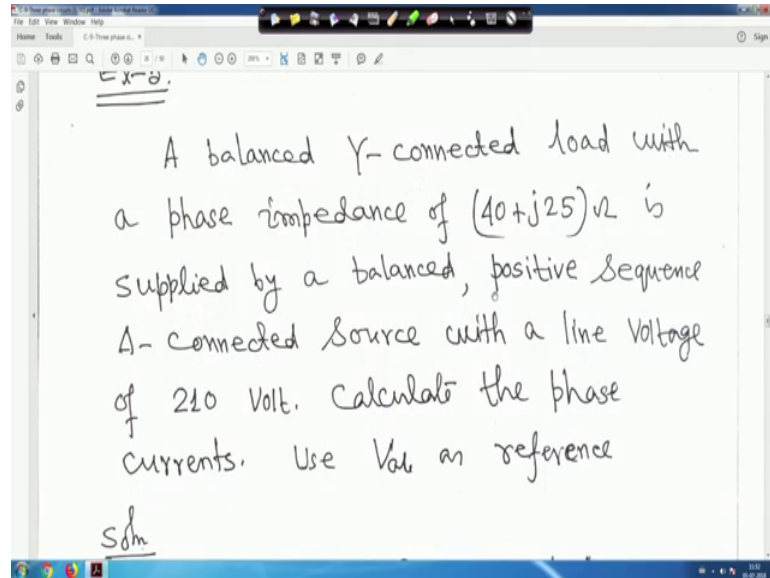 C-9-Three phase circuits (1-50).pdf - Adobe Acrobat Reader DC
File Edit View Window Help
Home Tools C-9-Three phase cir...
Sign
Ex-2.
A balanced Y-connected load with
a phase impedance of (40+j25)Ω is
supplied by a balanced, positive sequence
Δ-connected source with a line voltage
of 210 Volt. Calculate the phase
currents. Use Vab as reference
Soln